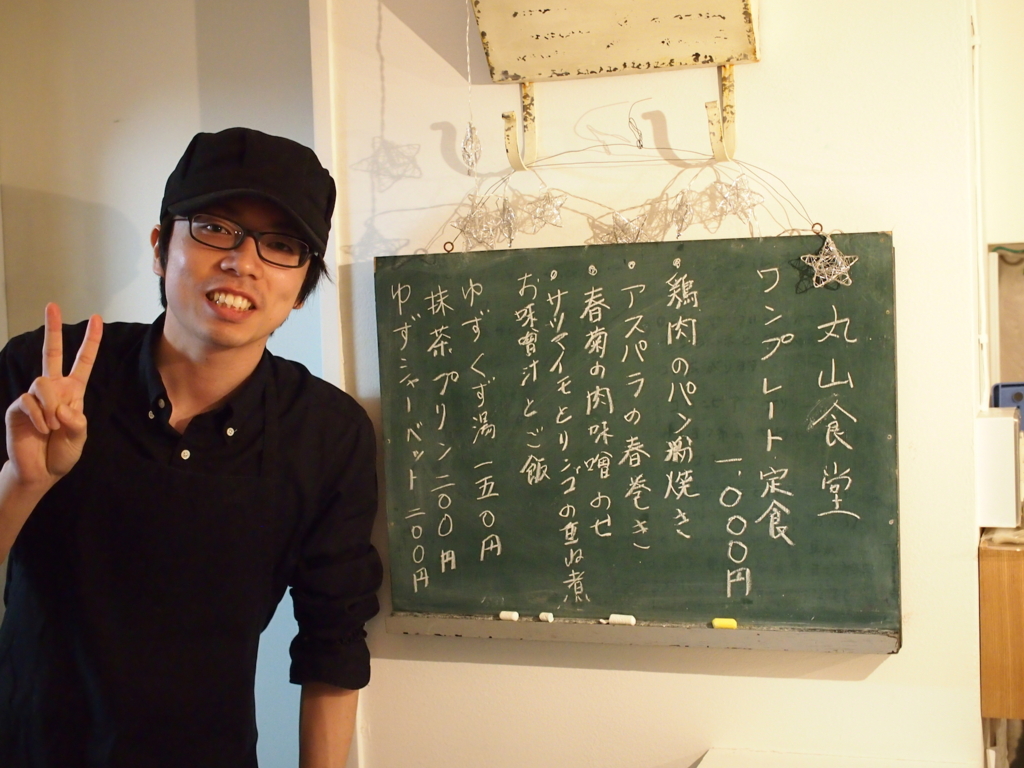 丸山食堂
ワンプレート定食
一、〇〇〇円
・鶏肉のパン粉焼き
・アスパラの春巻き
・春菊の肉味噌のせ
・サツマイモとリンゴの重ね煮
お味噌汁とご飯
ゆずくず湯 一五〇円
抹茶プリン 二〇〇円
ゆずシャーベット 二〇〇円